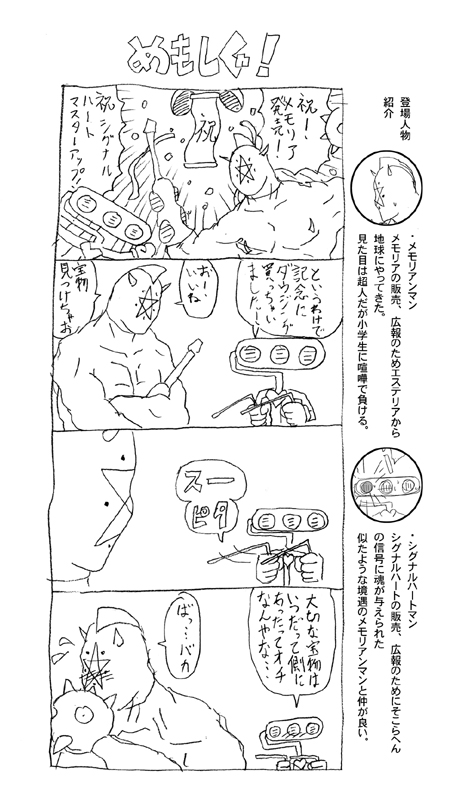 めもしぐ!
登場人物
紹介
・メモリアンマン
メモリアの販売、広報のためエステリアから
地球にやってきた。
見た目は超人だが小学生に喧嘩で負ける。
・シグナルハートマン
シグナルハートの販売、広報のためにそこらへん
の信号に魂が与えられた
似たような境遇のメモリアンマンと仲が良い。
祝!
メモリア
発売!
祝
祝シグナル
ハート
マスターアップ!
というわけで
記念に
ダウジング
買っちゃい
ました!
おーいいね
宝物
見つけちゃお
スー
ピタ
大切な宝物は
いつだって側に
あったってオチ
なんやな…
ばっ…バカ